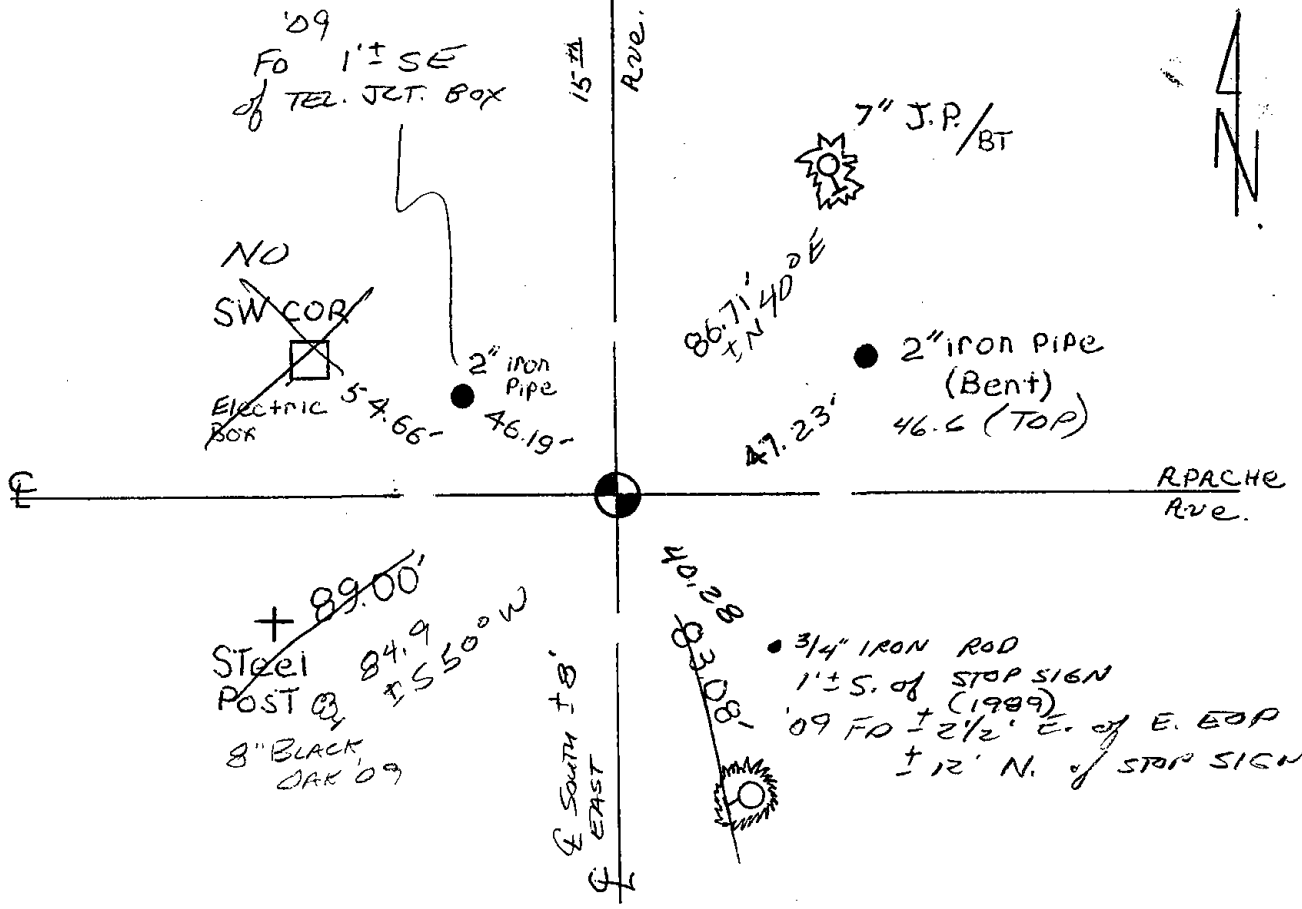 '09
FD 1'± SE
of TEL. JCT. BOX
15TH AVE.
7" J.P./BT
N
NO
SW COR
Electric
Box
54.66-
2" iron
Pipe
46.19-
86.71'
± N 40° E
2" iron PiPe
(Bent)
46.6 (TOP)
47.23'
℄
APACHE
Ave.
89.00'
STeel
POST
84.9
± S 50° W
8" BLACK
OAK '09
40.28
83.08'
3/4" IRON ROD
1'± S. of STOP SIGN
(1989)
'09 FD ± 2 1/2' E. of E. EOP
± 12' N. of STOP SIGN
℄ SOUTH ±8'
EAST
℄